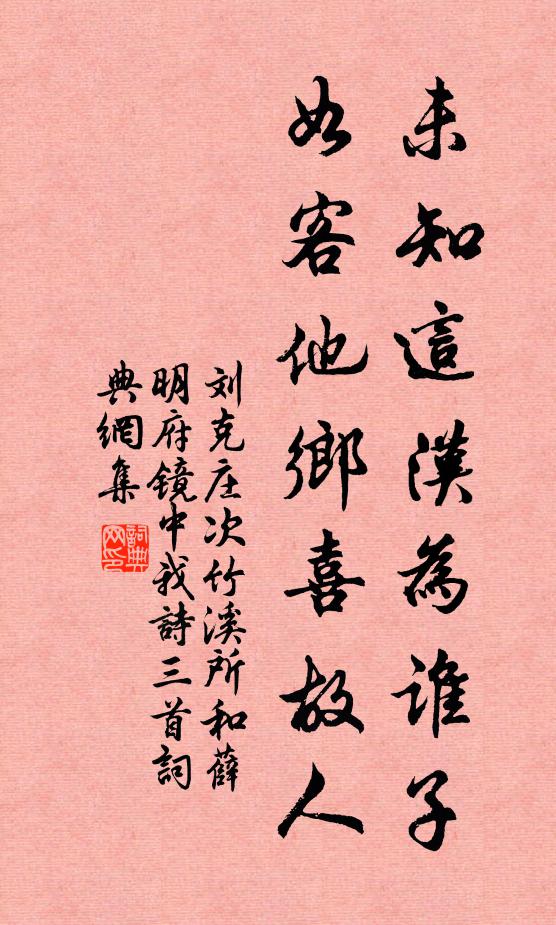 未知這漢為誰子
如客他鄉喜故人
刘克庄次竹溪所和薛
明府镜中我詩三首詞
典網集
詞典
网印